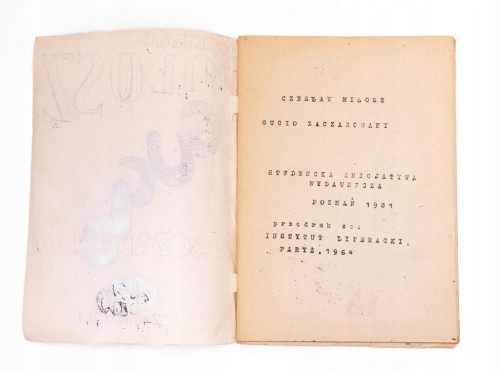 CZESŁAW MIŁOSZ
GUCIO ZACZAROWANY
STUDENCKA INICJATYWA
WYDAWNICZA
POZNAŃ 1981
przedruk za:
INSTYTUT LITERACKI,
PARYŻ, 1964